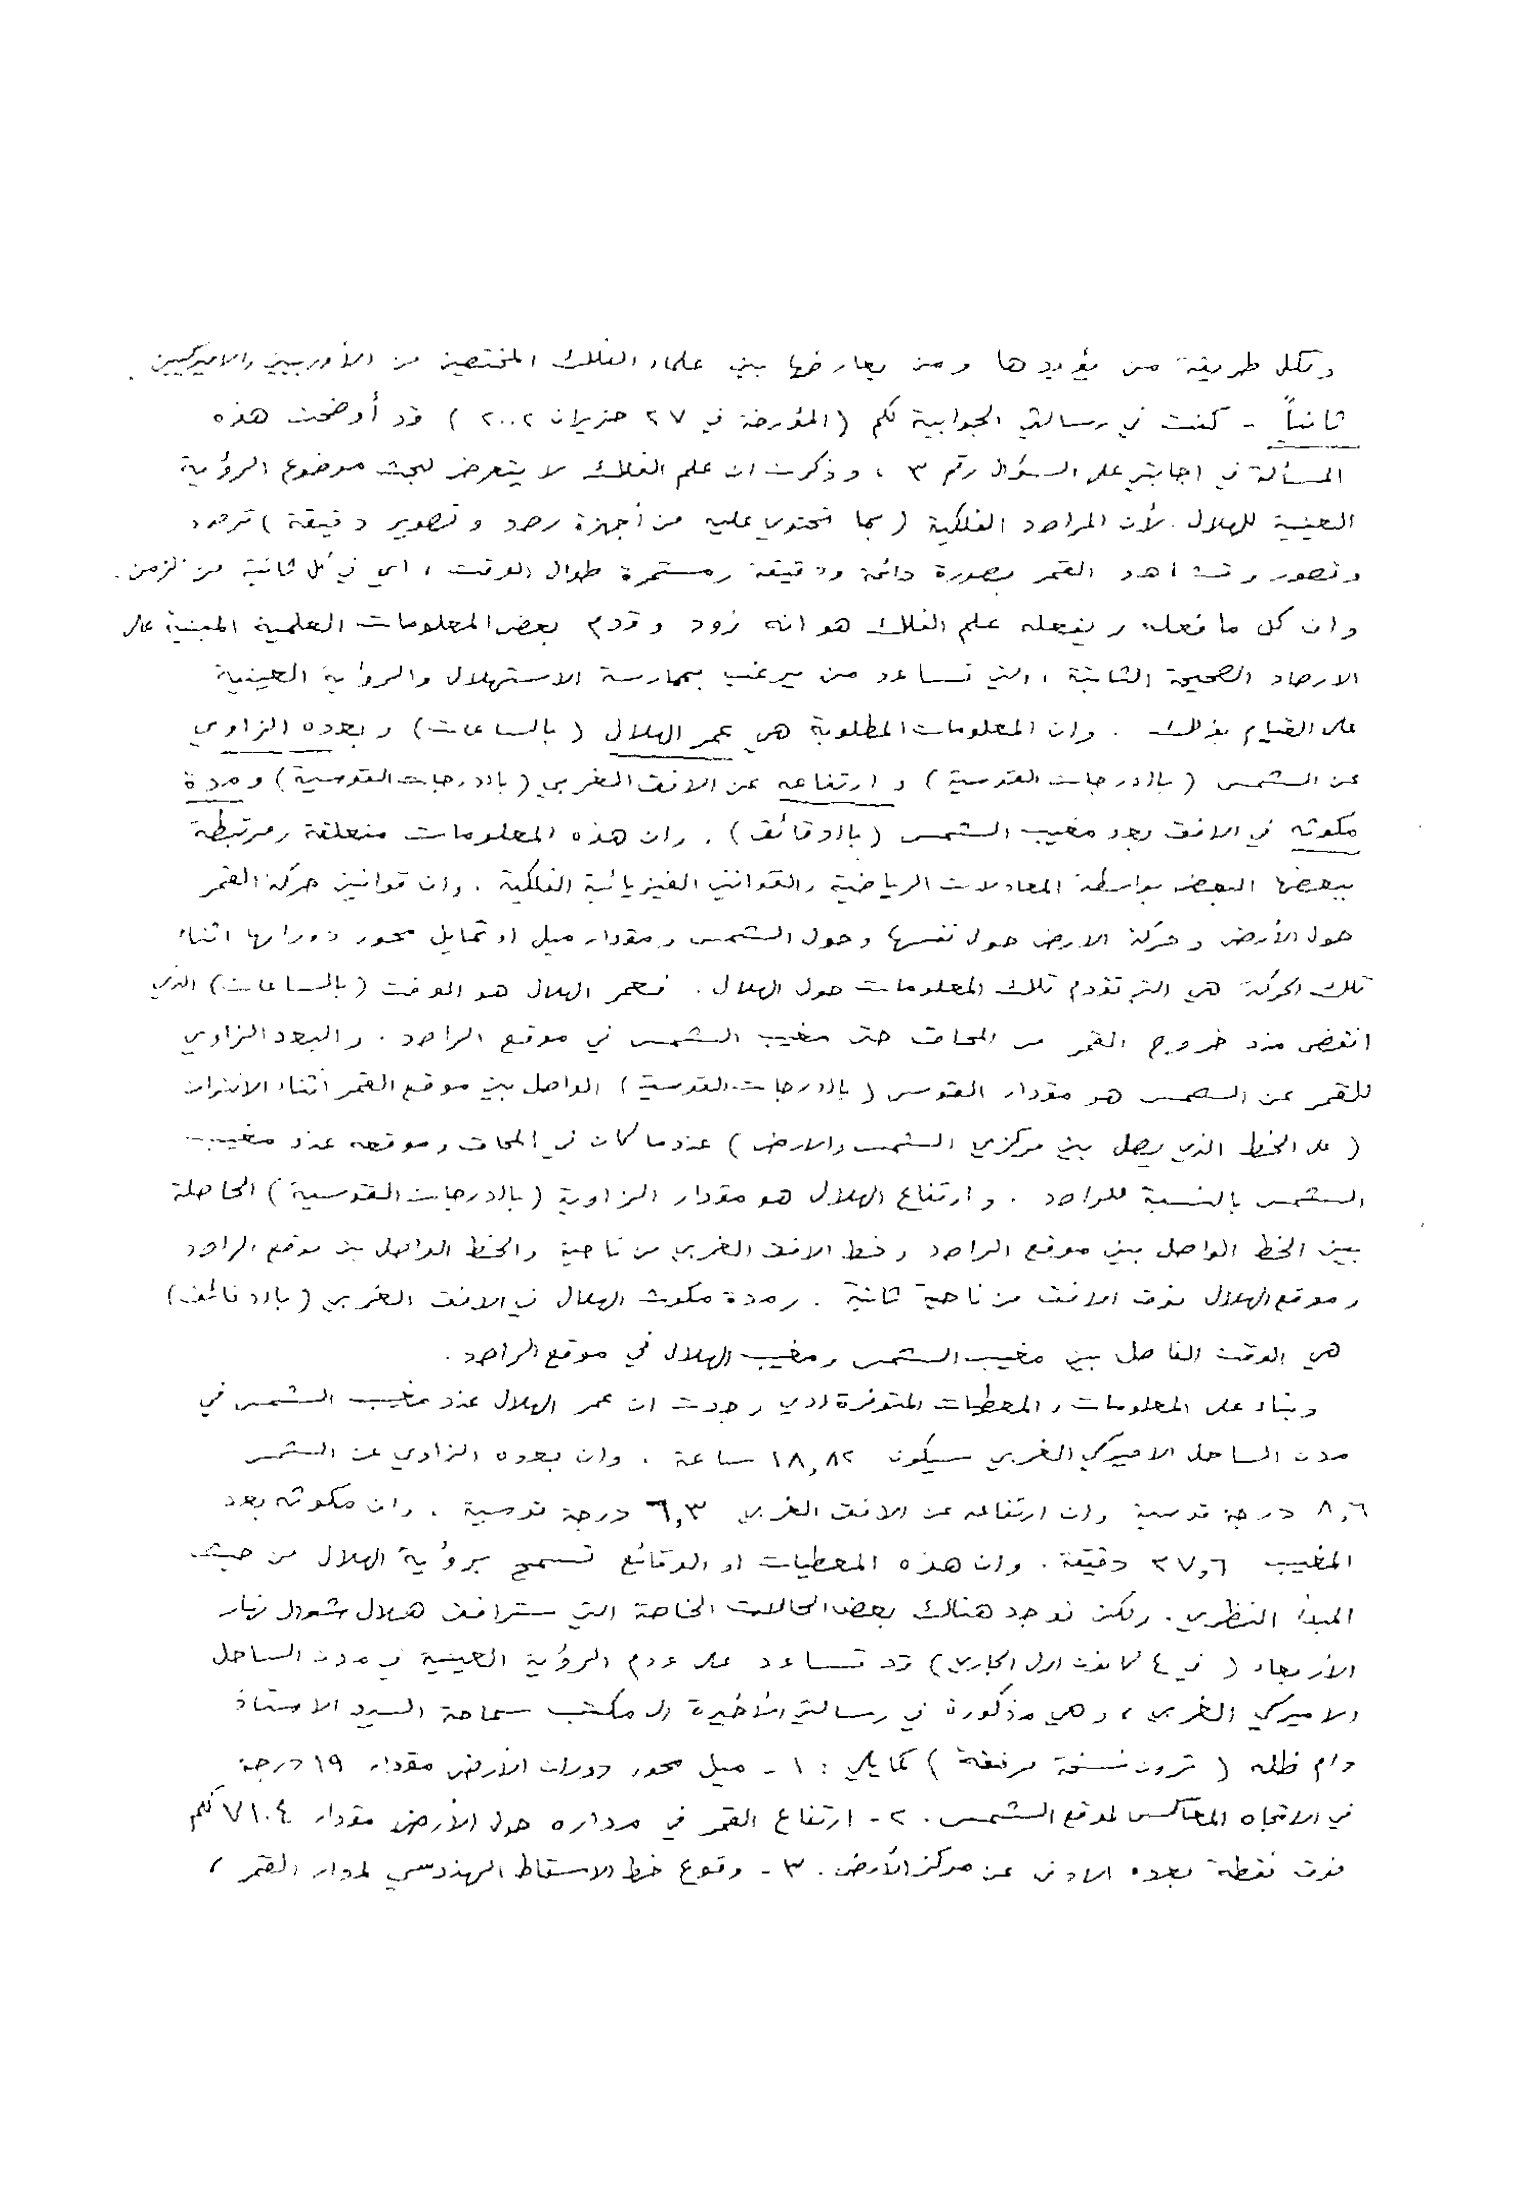 ولكل طريقة من يؤيدها ومن يعارضها بين علماء الفلك المختصين من الأوربيين والاميركيين .
ثانياً - كنت في رسالتي الجوابية لكم (المؤرخة في ٢٧ حزيران ٢٠٠٢ ) قد أوضحت هذه
المسألة في اجابتي على السؤال رقم ٣ ، وذكرت ان علم الفلك لا يتعرض لبحث موضوع الرؤية
العينية للهلال . لأن المراصد الفلكية ( بما تحتوي عليه من أجهزة رصد وتصوير دقيقة ) ترصد
وتصور وتشاهد القمر بصورة دائمة ودقيقة ومستمرة طوال الوقت ، اي في كل ثانية من الزمن .
وان كل ما فعله ويفعله علم الفلك هو انه زود وقدم بعض المعلومات العلمية المبنية على
الارصاد الصحيحة الثابتة ، التي تساعد من يرغب بممارسة الاستهلال والرؤية العينية
على القيام بذلك . وان المعلومات المطلوبة هي عمر الهلال ( بالساعات ) وبعده الزاوي
عن الشمس ( بالدرجات القوسية ) وارتفاعه عن الافق الغربي ( بالدرجات القوسية ) ومدة
مكوثه في الافق بعد مغيب الشمس ( بالدقائق ) . وان هذه المعلومات متعلقة ومرتبطة
ببعضها البعض بواسطة المعادلات الرياضية والقوانين الفيزيائية الفلكية . وان قوانين حركة القمر
حول الأرض وحركة الارض حول نفسها وحول الشمس ومقدار ميل او تمايل محور دورانها اثناء
تلك الحركة هي التي تقدم تلك المعلومات حول الهلال . فعمر الهلال هو الوقت ( بالساعات ) الذي
انقضى منذ خروج القمر من المحاق حتى مغيب الشمس في موقع الراصد . والبعد الزاوي
للقمر عن الشمس هو مقدار القوس ( بالدرجات القوسية ) الواصل بين موقع القمر اثناء الاقتران
( على الخط الذي يصل بين مركزي الشمس والارض ) عندما كان في المحاق وموقعه عند مغيب
الشمس بالنسبة للراصد . وارتفاع الهلال هو مقدار الزاوية ( بالدرجات القوسية ) الحاصلة
بين الخط الواصل بين موقع الراصد وخط الافق الغربي من ناحية والخط الواصل بين موقع الراصد
وموقع الهلال فوق الافق من ناحية ثانية . ومدة مكوث الهلال في الافق الغربي ( بالدقائق )
هي الوقت الفاصل بين مغيب الشمس ومغيب الهلال في موقع الراصد .
وبناء على المعلومات والمعطيات المتوفرة لدي وجدت ان عمر الهلال عند مغيب الشمس في
مدن الساحل الاميركي الغربي سيكون ١٨,٨٢ ساعة ، وان بعده الزاوي عن الشمس
٨,٦ درجة قوسية وان ارتفاعه عن الافق الغربي ٦,٣ درجة قوسية ، وان مكوثه بعد
المغيب ٣٧,٦ دقيقة . وان هذه المعطيات او الوقائع تسمح برؤية الهلال من حيث
المبدأ النظري . ولكن توجد هنالك بعض الحالات الخاصة التي سترافق هلال شوال نهار
الأربعاء ( في ٤ كانون اول الجاري ) قد تساعد على عدم الرؤية العينية في مدن الساحل
الاميركي الغربي ، وهي مذكورة في رسالتي الأخيرة الى مكتب سماحة السيد الاستاذ
دام ظله ( ترون نسخة مرفقة ) كما يلي : ١ - ميل محور دوران الأرض مقدار ١٩ درجة
في الاتجاه المعاكس لموقع الشمس . ٢ - ارتفاع القمر في مداره حول الأرض مقدار ٧١٠٤ كلم
فوق نقطة بعده الادنى عن مركز الأرض . ٣ - وقوع خط الاسقاط الهندسي لمدار القمر ،